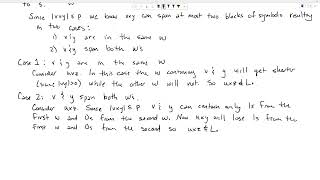 to s. w
Since |vxy| ≤ p we know vxy can span at most two blocks of symbols resulting
in two cases:
1) v & y are in the same w
2) v & y span both ws
Case 1: v & y are in the same w
Consider uxz. In this case the w containing v & y will get shorter
(since |vy|>0) while the other w will not. So uxz ∉ L.
Case 2: v & y span both ws.
Consider uxz. Since |vxy| ≤ p v & y can contain only 1s from the
first w and 0s from the second w. Now uxz will lose 1s from the
first w and 0s from the second so uxz ∉ L.